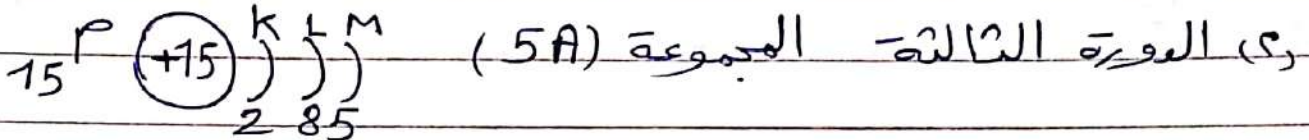 (ى) الدورة الثالثة المجموعة (5A) ₁₅P (+15) K L M
2 8 5